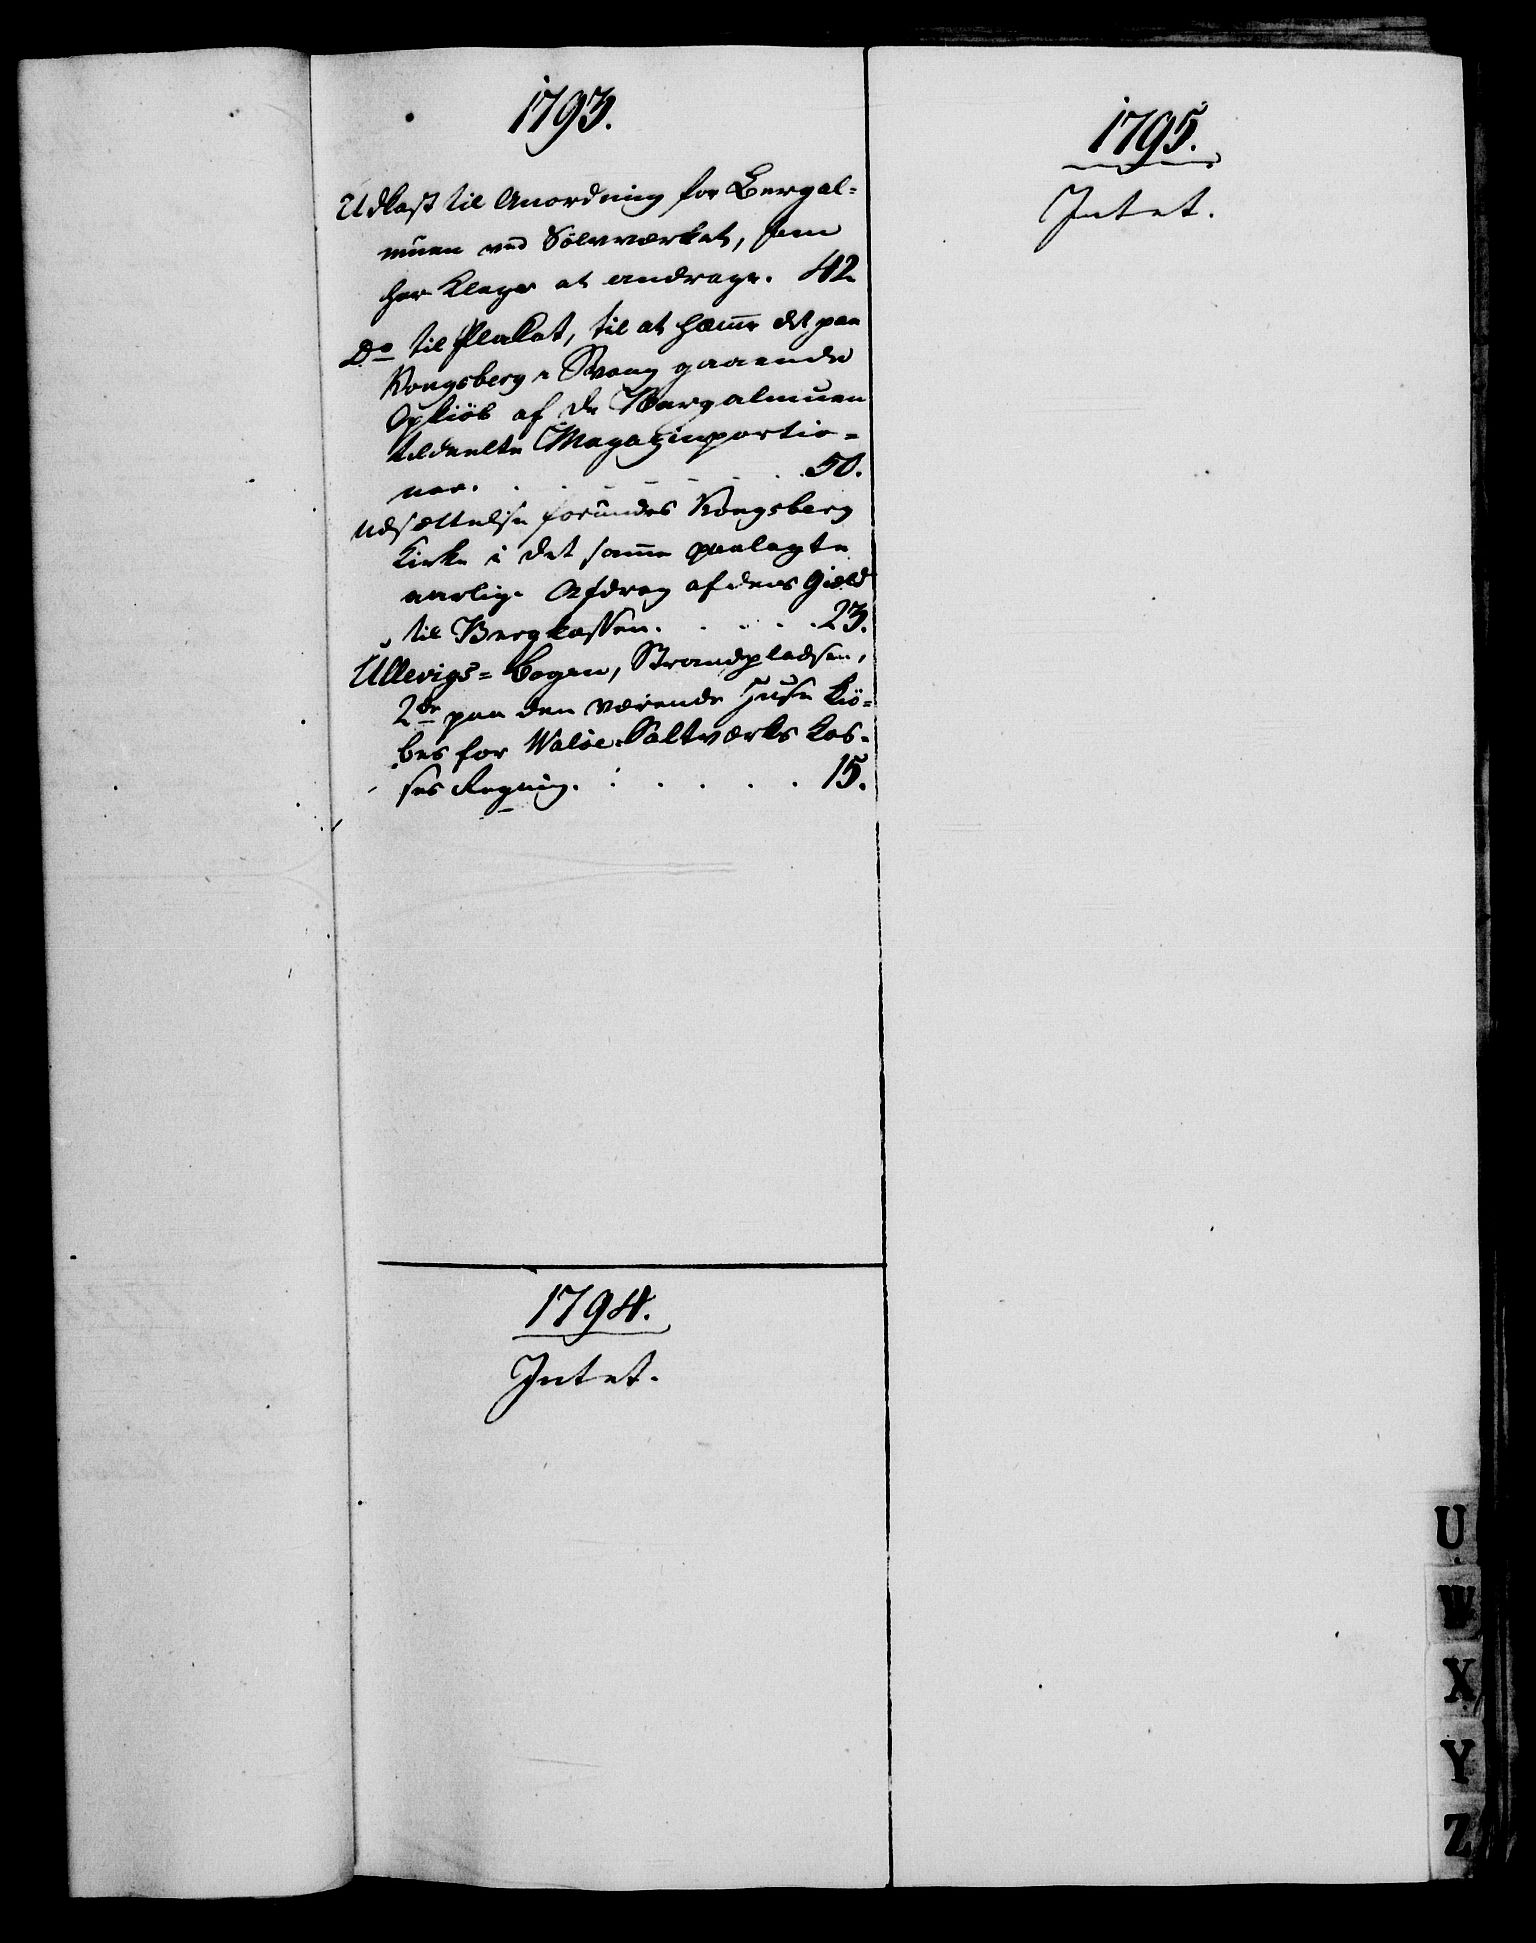 1793.
Udkast til Anordning for Bergal=
muen ved Sølvværket, som
har Klager at andrage. 42
Do til Plakat, til at hæme det paa
Kongsberg i Svang gaaende
Opkiöb af de Bergalmuen
tildeelte Magazinportio=
ner. . . . . . . 50.
Udsættelse forundes Kongsberg
Kirke i det samme paalagte
aarlige Afdrag af dens Gield
til Bergkassen. . . . . 23.
Ullevigs=bogen, Strandpladsen,
2de paa den værende Huse kiö=
bes for Walöe Saltværks Kas=
ses Regning. . . . . . 15.
1794.
Intet.
1795.
Intet.
U
W
X
Y
Z